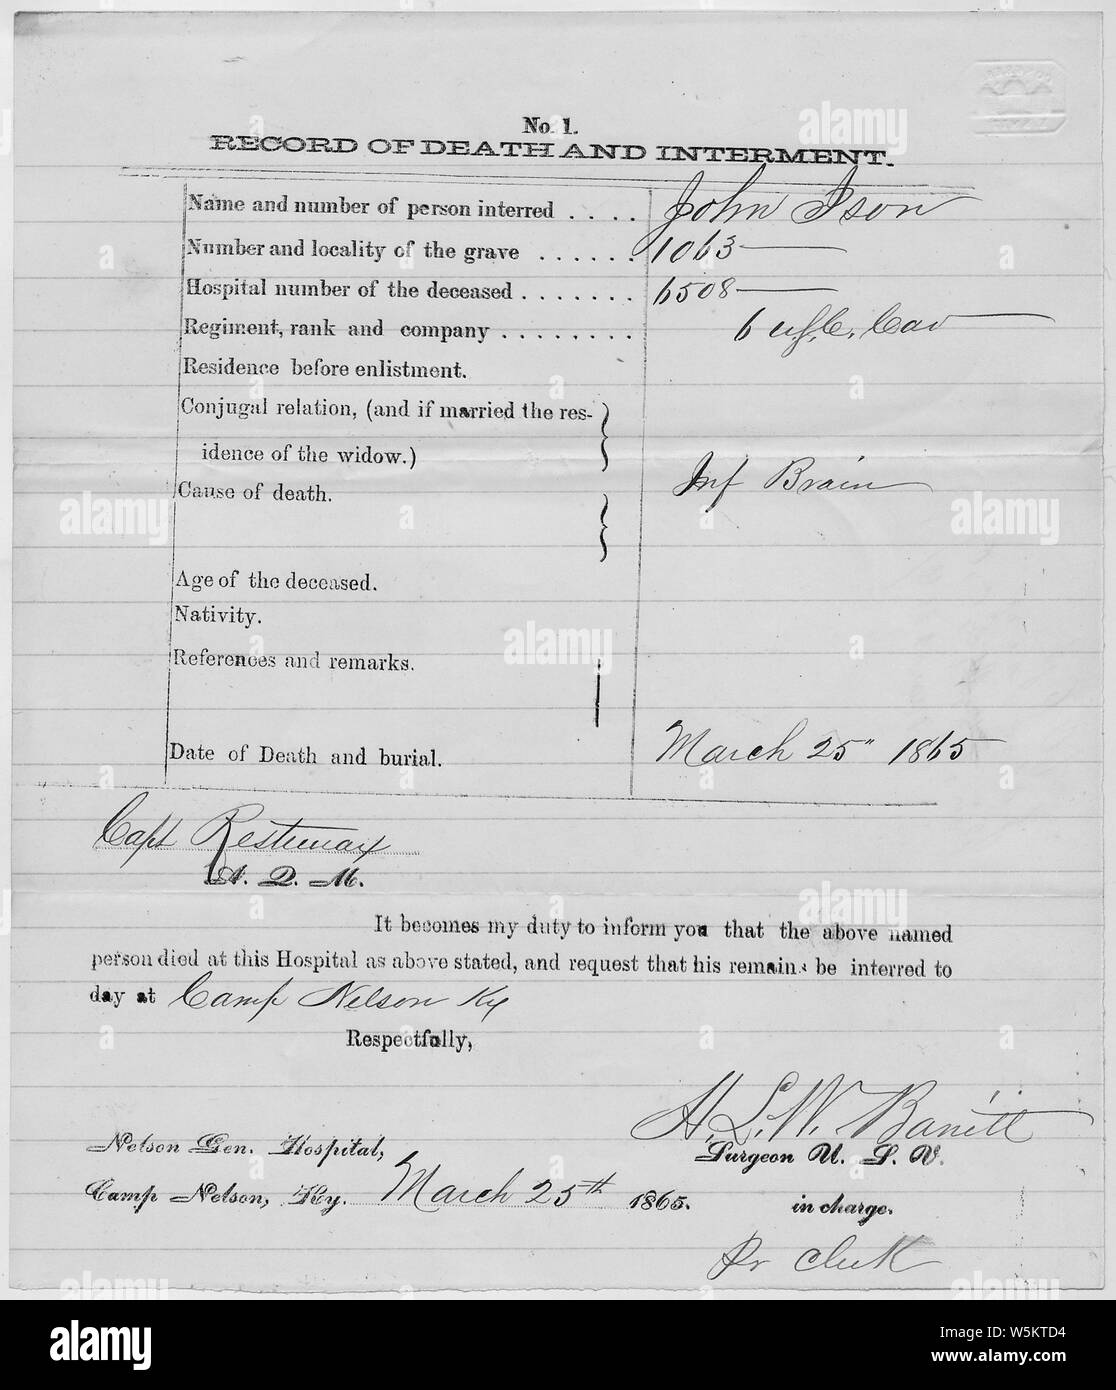 No. 1.
RECORD OF DEATH AND INTERMENT.
Name and number of person interred . . . . John Ison
Number and locality of the grave . . . . . . 1063
Hospital number of the deceased . . . . . . . 6508
Regiment, rank and company . . . . . . . . 6 U.S.C. Cav
Residence before enlistment.
Conjugal relation, (and if married the res-
idence of the widow.)
Cause of death. Inf Brain
Age of the deceased.
Nativity.
References and remarks.
Date of Death and burial. March 25" 1865
Capt Restieaux
A. Q. M.
It becomes my duty to inform you that the above named
person died at this Hospital as above stated, and request that his remains be interred to
day at Camp Nelson Ky
Respectfully,
H. L. W. Barritt
Nelson Gen. Hospital, Surgeon U. S. V.
Camp Nelson, Ky. March 25th 1865. in charge.
Pr Clerk
alamy
alamy
Image ID: W5KTD4
www.alamy.com